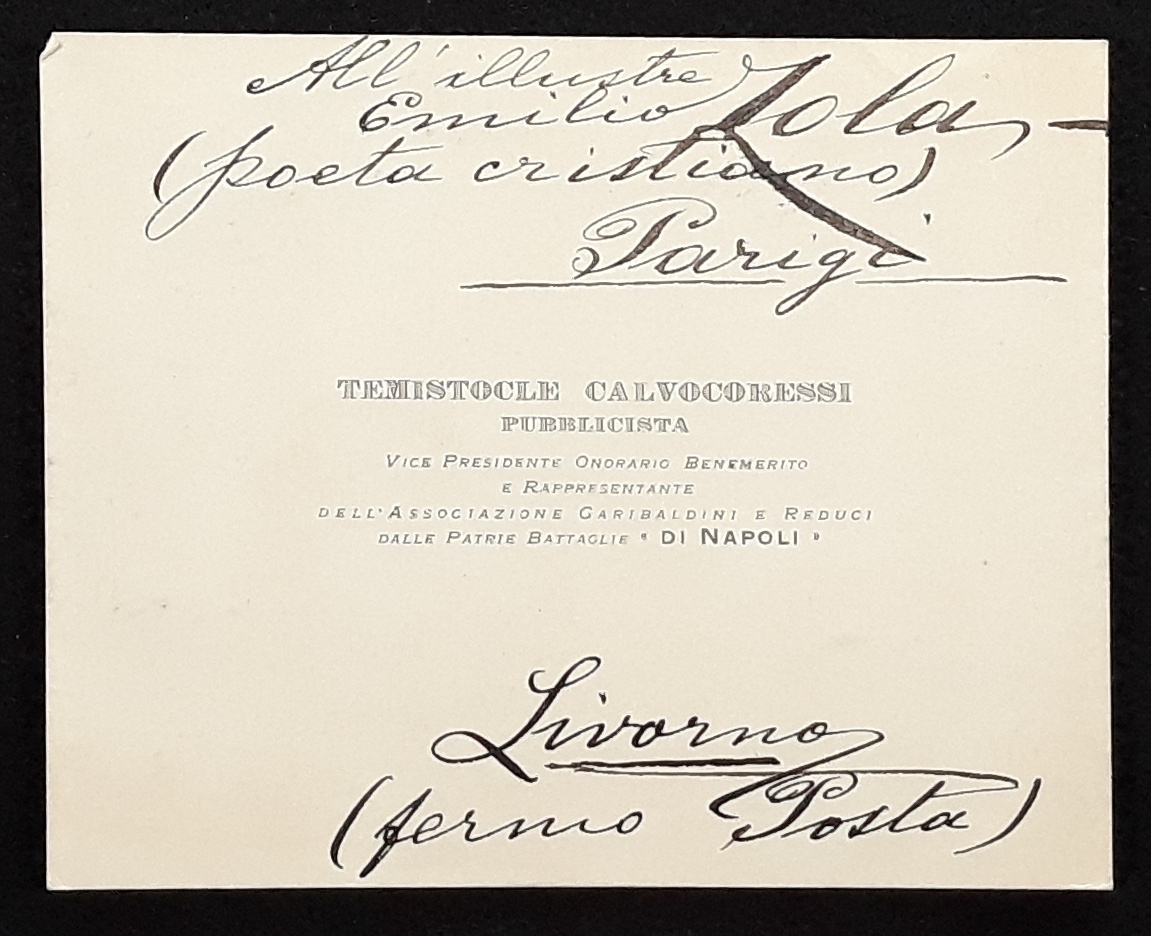 All'illustre
Emilio Zola,—
(poeta cristiano)
Parigi
TEMISTOCLE CALVOCORESSI
PUBBLICISTA
VICE PRESIDENTE ONORARIO BENEMERITO
E RAPPRESENTANTE
DELL'ASSOCIAZIONE GARIBALDINI E REDUCI
DALLE PATRIE BATTAGLIE “ DI NAPOLI ”
Livorno
(fermo Posta)